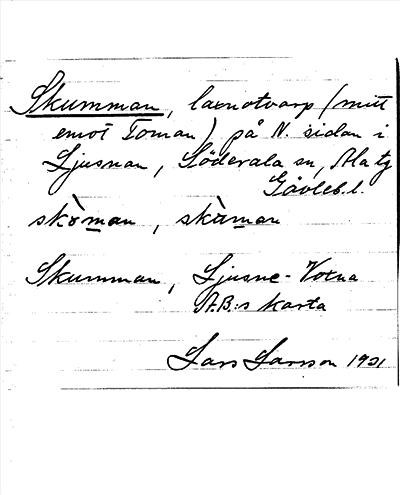 Skumman, laxnotvarp (mitt
emot Toman) på N. sidan i
Ljusnan, Söderala sn, Ala tg
Gävleb. l.
skò̀man, skàman
Skumman, Ljusne-Voxna
A.B:s karta
Lars Larsson 1921